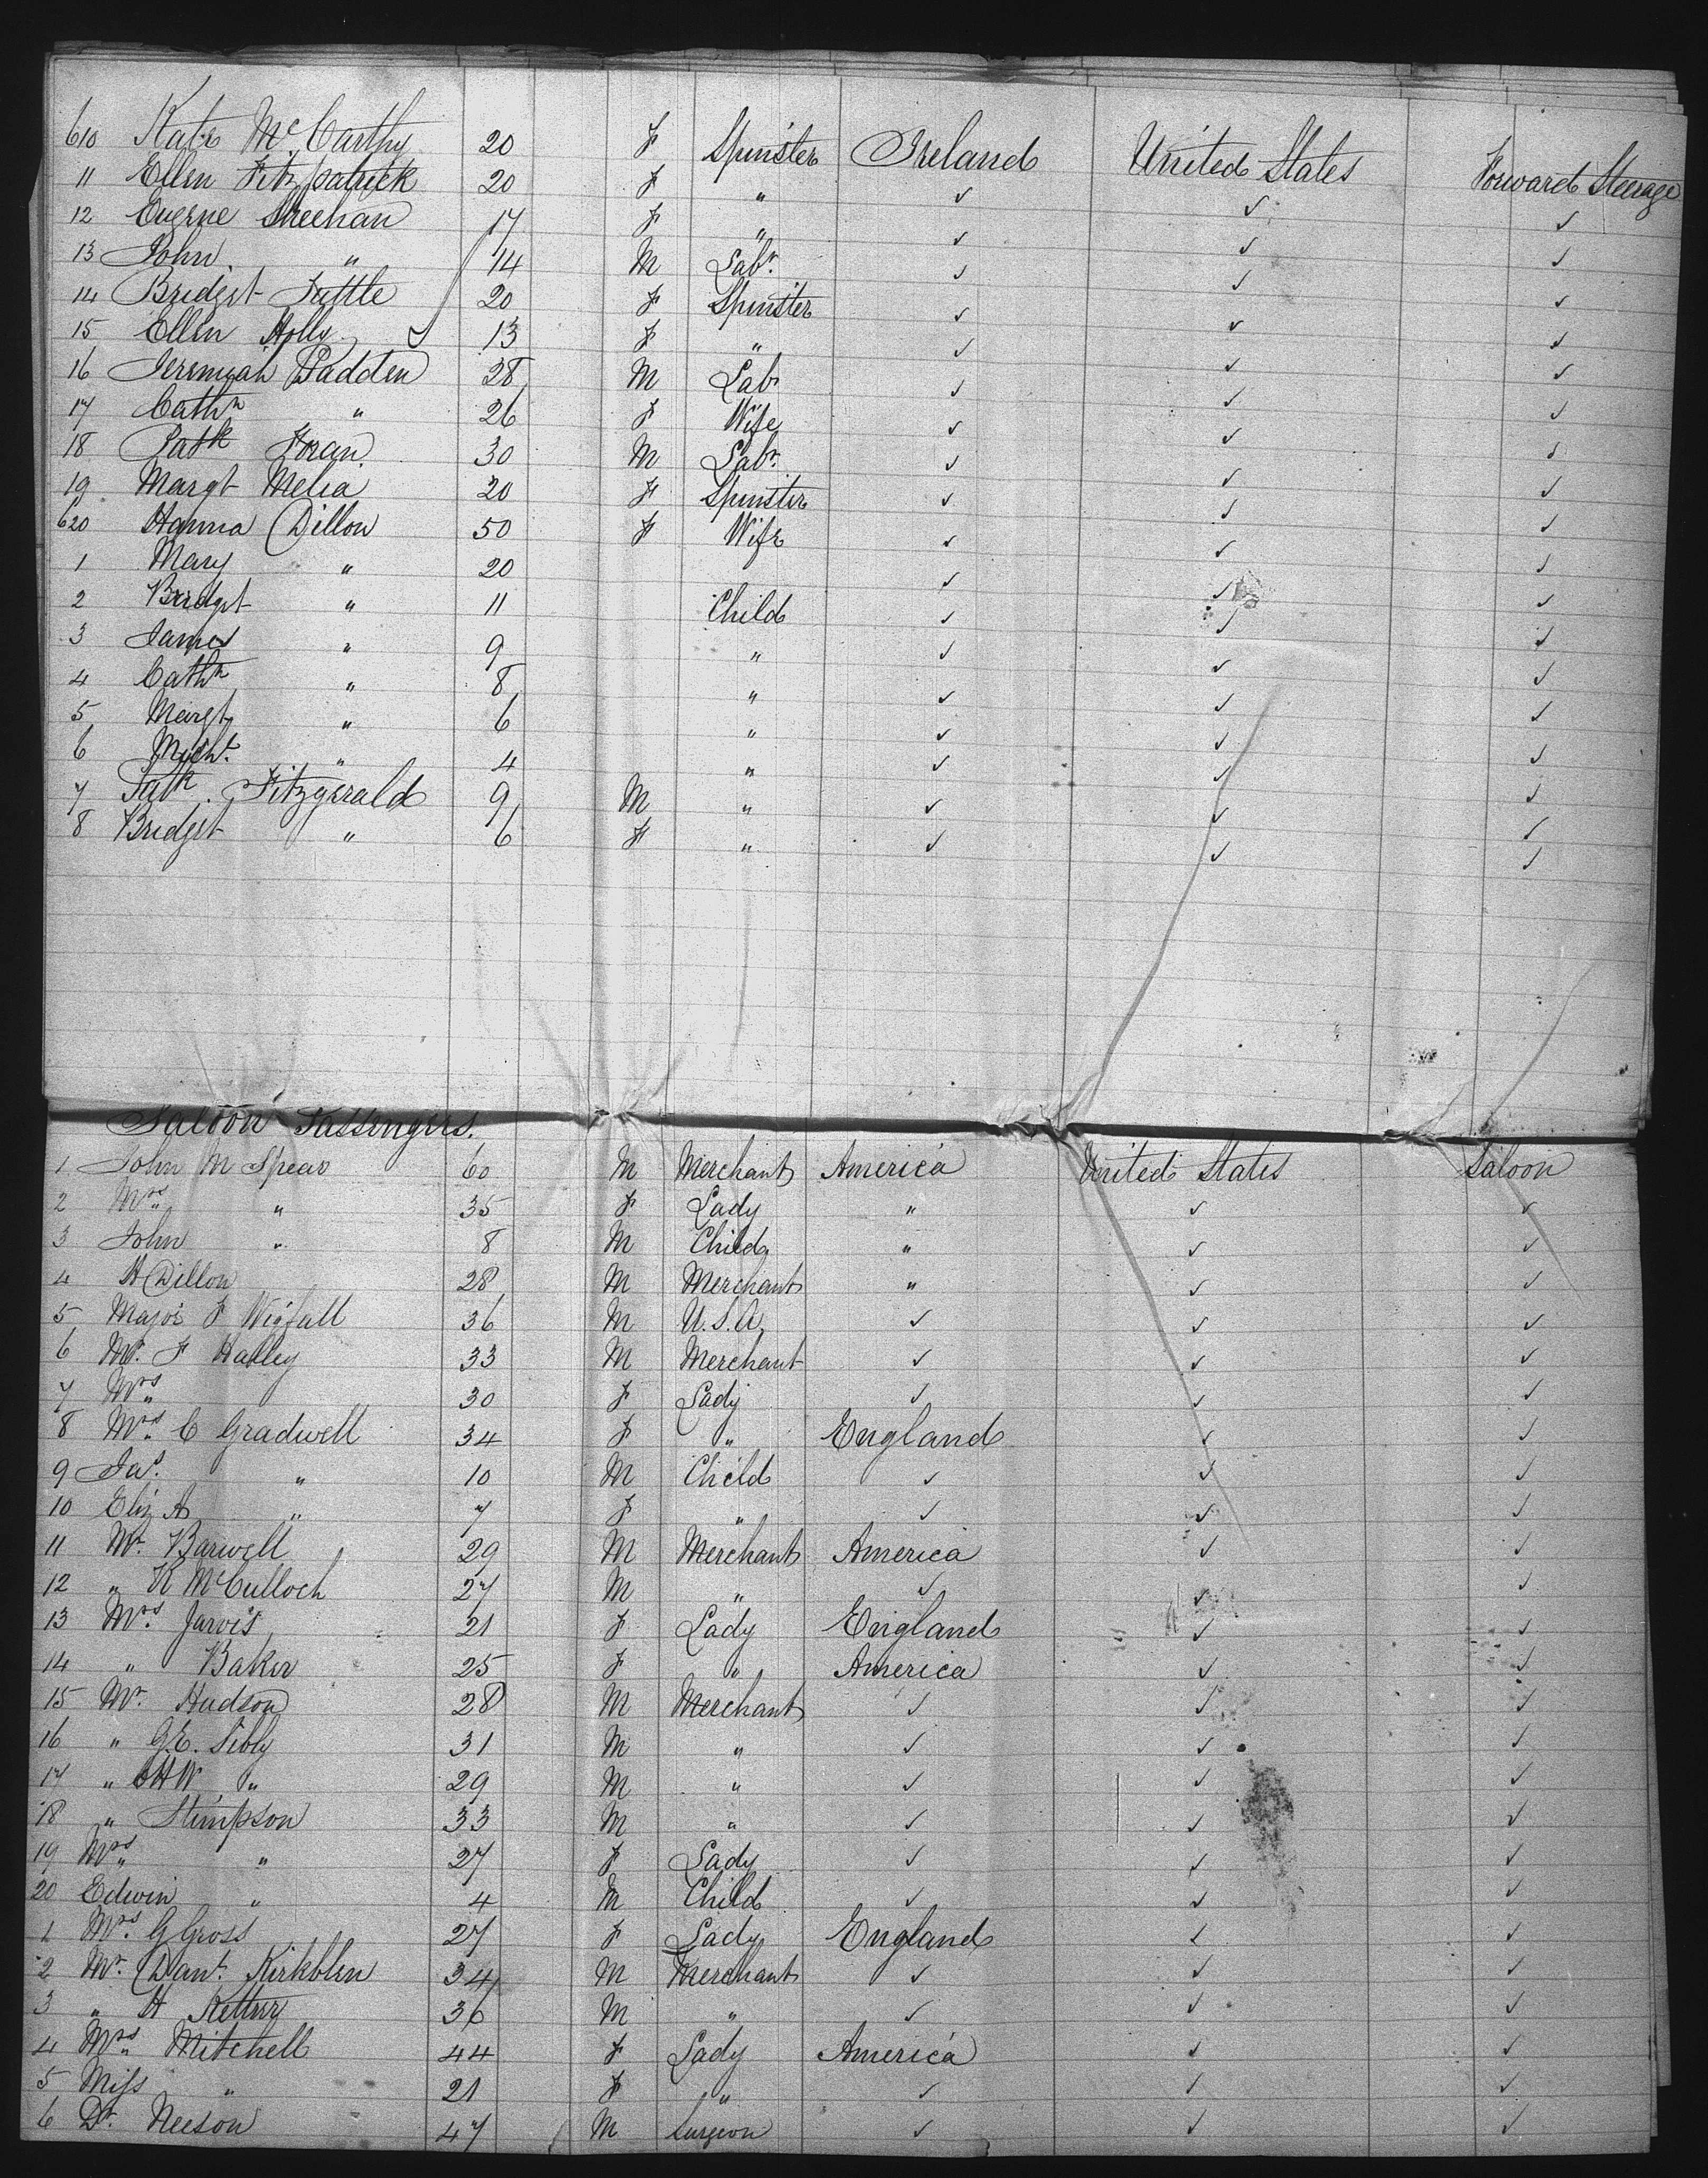 610 Kate McCarthy 20 F Spinster Ireland United States Forward Steerage
11 Ellen Fitzpatrick 20 F " ✓ ✓ ✓
12 Eugene Sheehan 17 F " ✓ ✓ ✓
13 John " 14 M Labr. ✓ ✓ ✓
14 Bridget Tuttle 20 F Spinster ✓ ✓ ✓
15 Ellen Holly 13 F " ✓ ✓ ✓
16 Jeremiah Padden 28 M Labr ✓ ✓ ✓
17 Cathn " 26 F Wife ✓ ✓ ✓
18 Patk Horan 30 M Labr. ✓ ✓ ✓
19 Margt Melia 20 F Spinster ✓ ✓ ✓
620 Hanna Dillon 50 F Wife ✓ ✓ ✓
1 Mary " 20 ✓ ✓ ✓
2 Bridget " 11 Child ✓ ✓ ✓
3 James " 9 " ✓ ✓ ✓
4 Cathn " 8 " ✓ ✓ ✓
5 Margt " 6 " ✓ ✓ ✓
6 Michl. " 4 " ✓ ✓ ✓
7 Patk. Fitzgerald 9 M " ✓ ✓ ✓
8 Bridget " 6 F " ✓ ✓ ✓
Saloon Passengers.
1 John M Spear 60 M Merchant America United States Saloon
2 Mrs " 35 F Lady " ✓ ✓
3 John " 8 M Child " ✓ ✓
4 H Dillon 28 M Merchant " ✓ ✓
5 Major F Wigfall 36 M U.S.A. ✓ ✓ ✓
6 Mr. F Halley 33 M Merchant ✓ ✓ ✓
7 Mrs " 30 F Lady ✓ ✓ ✓
8 Mrs. C Gradwell 34 F " England ✓ ✓
9 Jas. " 10 M Child ✓ ✓ ✓
10 Eliz A " 7 F " ✓ ✓ ✓
11 Mr. Barwell 29 M Merchant America ✓ ✓
12 " K McCulloch 27 M " ✓ ✓ ✓
13 Mrs. Jarvis 21 F Lady England ✓ ✓
14 " Baker 25 F " America ✓ ✓
15 Mr. Hudson 28 M Merchant ✓ ✓ ✓
16 " G.E. Sibly 31 M " ✓ ✓ ✓
17 " HW " 29 M " ✓ ✓ ✓
18 " Stimpson 33 M " ✓ ✓ ✓
19 Mrs " 27 F Lady ✓ ✓ ✓
20 Edwin " 4 M Child ✓ ✓ ✓
1 Mrs. G Gross 27 F Lady England ✓ ✓
2 Mr. Danl. Kirkblen 34 M Merchant ✓ ✓ ✓
3 " H 36 M " ✓ ✓ ✓
4 Mrs. Mitchell 44 F Lady America ✓ ✓
5 Miss " 21 F " ✓ ✓ ✓
6 Dr. Neeson 47 M Surgeon ✓ ✓ ✓